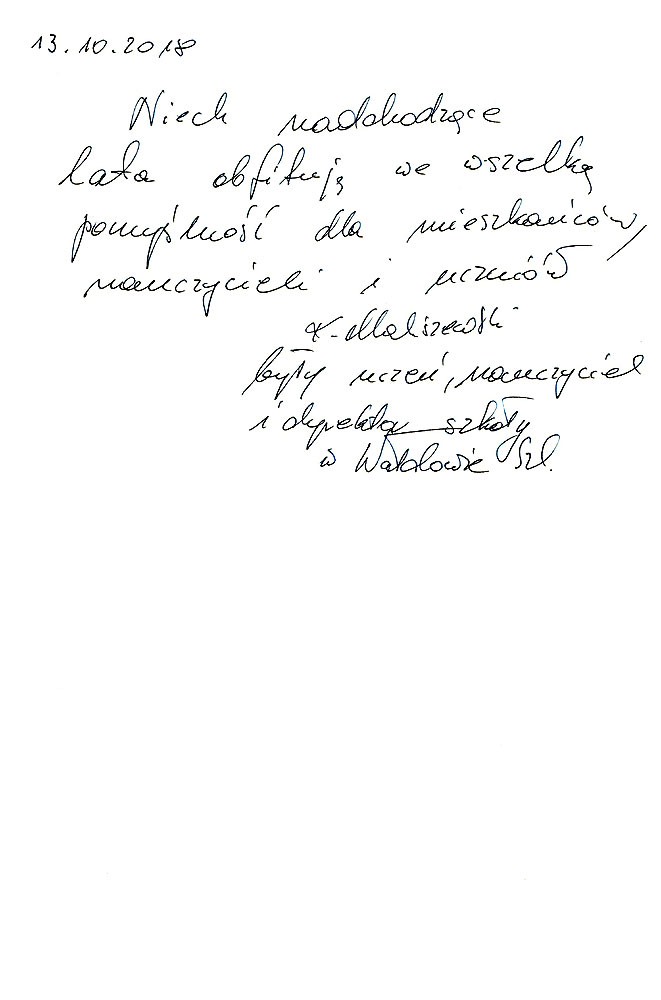 13.10.2018
Niech nadchodzące
lata obfitują we wszelką
pomyślność dla mieszkańców,
nauczycieli i uczniów
K. Maliszewski
były uczeń, nauczyciel
i dyrektor szkoły
w Śl.